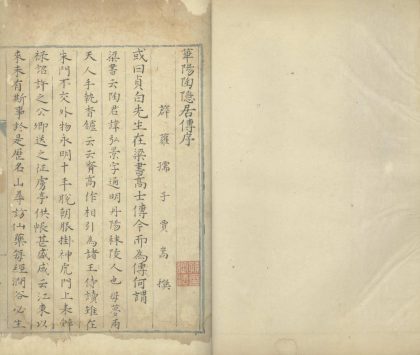 華陽陶隱居傳序
薜蘿孺子賈嵩撰
或曰貞白先生在梁書高士傳今而為傳何謂
梁書云陶君諱弘景字通明丹陽秣陵人也母夢兩
天人手執香鑪云云齊高作相引為諸王侍讀雖在
朱門不交外物永明十年脫朝服掛神虎門上表辭
祿詔許之公卿送之征虜亭供帳甚盛咸云江東以
來未有斯事於是歷名山尋訪仙藥每經澗谷必坐